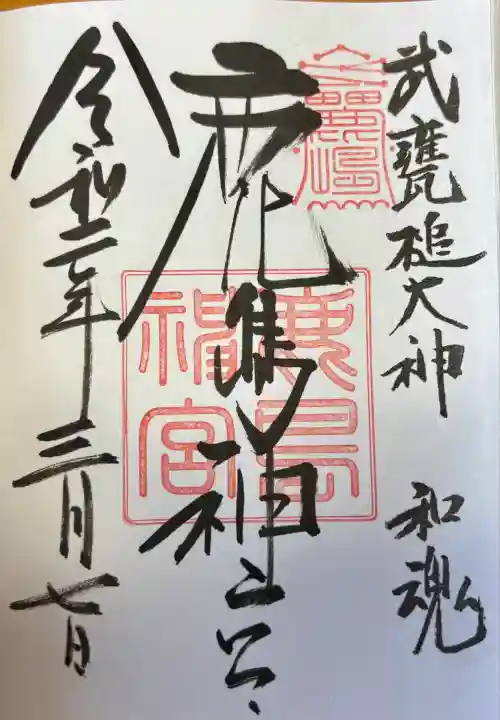 武甕槌大神 和魂
鹿嶋
鹿島神宮
鹿島神宮
令和二年三月七日